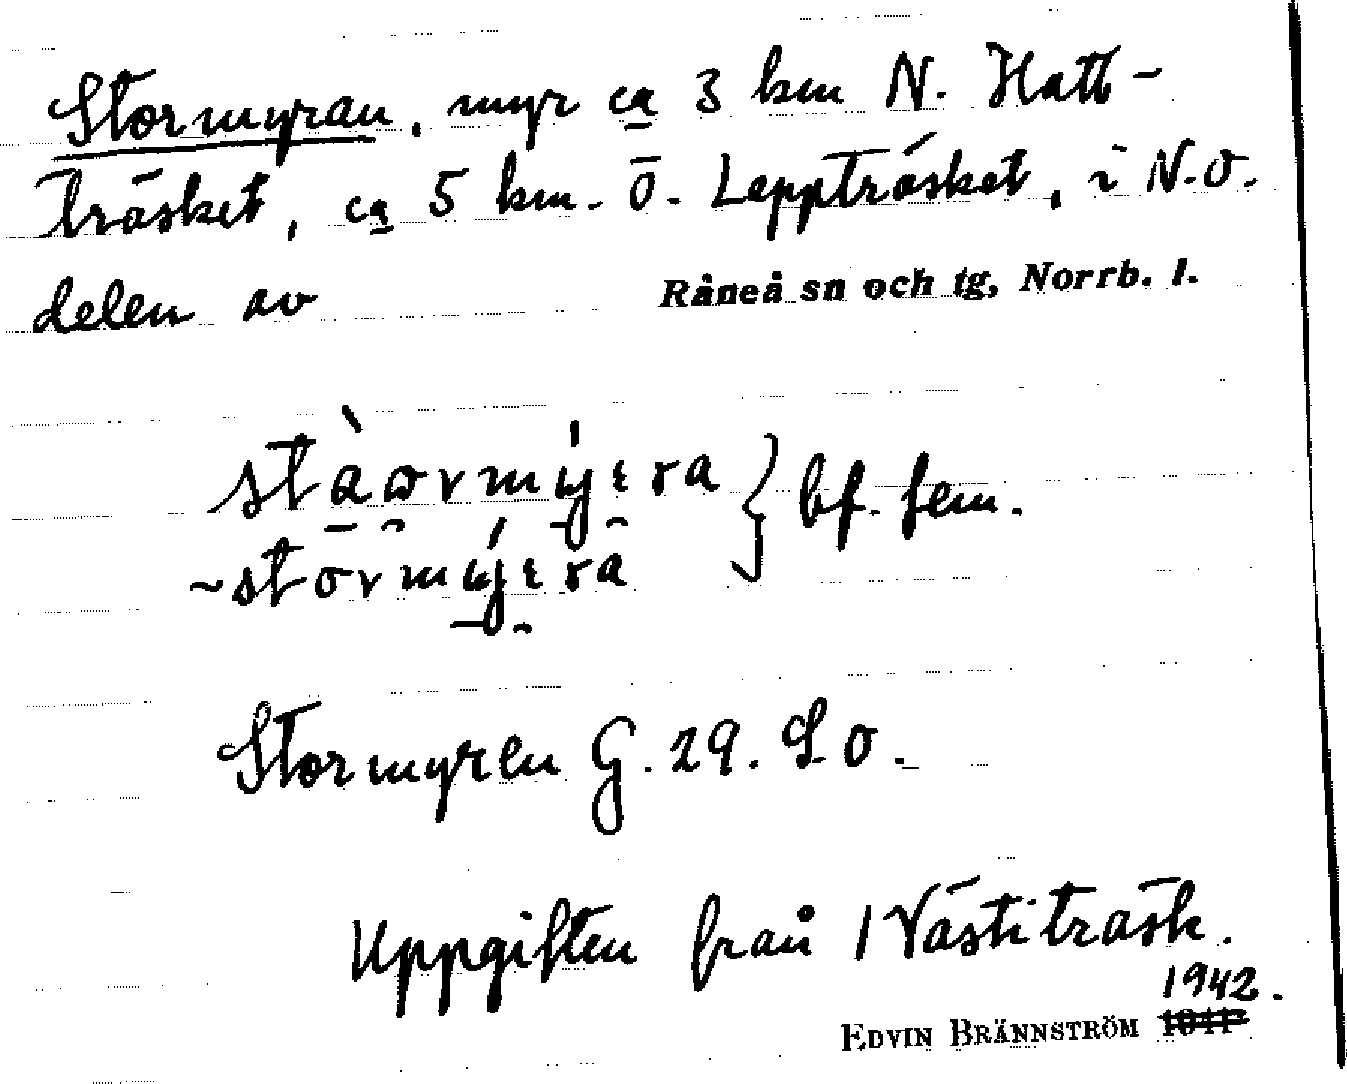 Stormyran, myr ca 3 km N. Hatt-
träsket, ca 5 km. Ö. Leppträsket, i N.O.
delen av Råneå sn och tg, Norrb. l.
bf. fem.
Stormyren G. 29. S.o.
Uppgiften från 1 Västiträsk.
1942.
EDVIN BRÄNNSTRÖM 1941